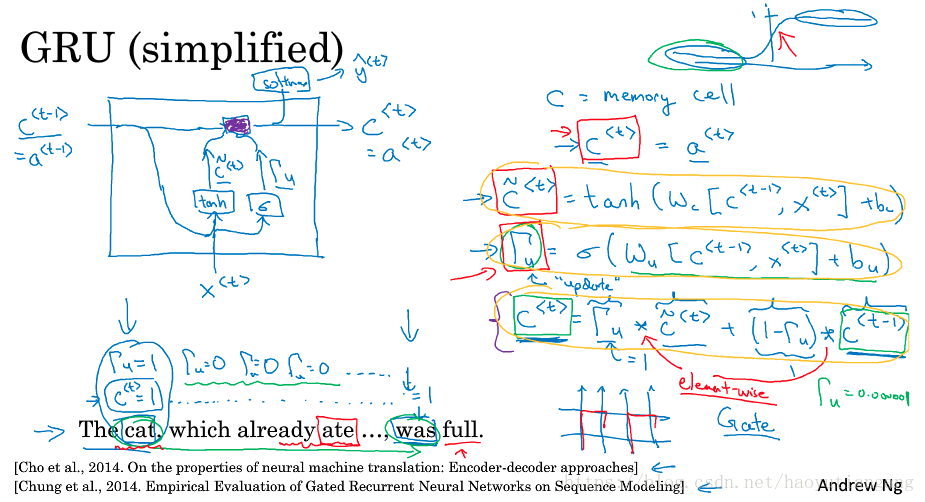 GRU (simplified)
softmax → ŷ<t>
c<t-1>
= a<t-1>
c<t>
= a<t>
c̃<t> Γu
tanh σ
x<t>
1
C = memory cell
→ c<t> = a<t>
→ c̃<t> = tanh (Wc [c<t-1>, x<t>] + bc)
→ Γu = σ( Wu [c<t-1>, x<t>] + bu)
"update"
c<t> = Γu * c̃<t> + (1-Γu) * c<t-1>
= 1
element-wise
Γu = 0.000001
Gate
Γu=1 Γu=0 Γu=0 Γu=0 ......
c<t>=1 ...... = 1
→ The cat, which already ate ..., was full.
[Cho et al., 2014. On the properties of neural machine translation: Encoder-decoder approaches] ←
[Chung et al., 2014. Empirical Evaluation of Gated Recurrent Neural Networks on Sequence Modeling] ←
Andrew Ng